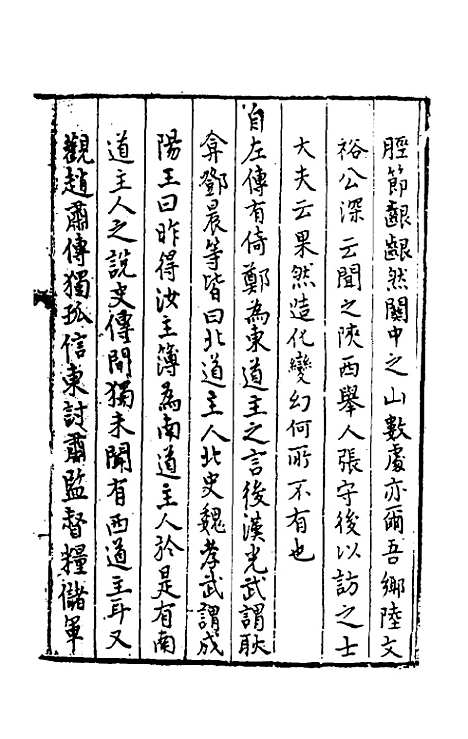 脛節齦齦然關中之山數處亦爾吾鄉陸文
裕公深云聞之陝西舉人張守後以訪之士
大夫云果然造化變幻何所不有也
自左傳有倚鄭為東道主之言後漢光武謂耿
弇鄧晨等皆曰北道主人北史魏孝武謂咸
陽王曰昨得汝主簿為南道主人於是有南
道主人之說史傳間獨未聞有西道主耳又
觀趙肅傳獨孤信東討肅監督糧儲軍